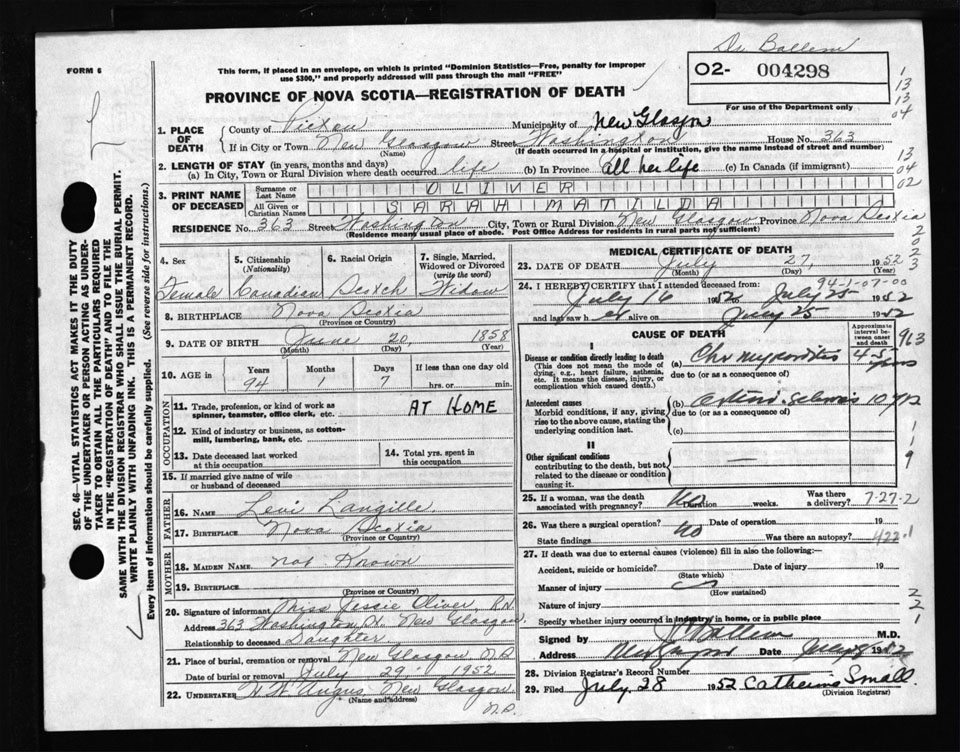 Dr Ballem
FORM 6
This form, if placed in an envelope, on which is printed "Dominion Statistics—Free, penalty for improper use $300," and properly addressed will pass through the mail "FREE"
02- 004298
For use of the Department only
PROVINCE OF NOVA SCOTIA—REGISTRATION OF DEATH
1 13 13 04
1. PLACE OF DEATH
County of Pictou Municipality of New Glasgow
If in City or Town New Glasgow (Name) Street Washington House No. 363
(If death occurred in a hospital or institution, give the name instead of street and number)
2. LENGTH OF STAY (in years, months and days)
(a) In City, Town or Rural Division where death occurred life (b) In Province all her life (c) In Canada (if immigrant)
13 04 02
3. PRINT NAME OF DECEASED
Surname or Last Name OLIVER
All Given or Christian Names SARAH MATILDA
RESIDENCE No. 363 Street Washington City, Town or Rural Division New Glasgow Province Nova Scotia
(Residence means usual place of abode. Post Office Address for residents in rural parts not sufficient)
4. Sex Female
5. Citizenship (Nationality) Canadian
6. Racial Origin Scotch
7. Single, Married, Widowed or Divorced (write the word) Widow
8. BIRTHPLACE Nova Scotia
(Province or Country)
9. DATE OF BIRTH June 20, 1858
(Month) (Day) (Year)
10. AGE Years 94 Months 1 Days 7 If less than one day old hrs. or min.
OCCUPATION
11. Trade, profession, or kind of work as spinner, teamster, office clerk, etc. AT HOME
12. Kind of industry or business, as cotton-mill, lumbering, bank, etc.
13. Date deceased last worked at this occupation
14. Total yrs. spent in this occupation
15. If married give name of wife or husband of deceased
FATHER
16. Name Levi Langille
17. BIRTHPLACE Nova Scotia
(Province or Country)
MOTHER
18. MAIDEN NAME not Known
19. BIRTHPLACE
(Province or Country)
20. Signature of informant Miss Jessie Oliver, R.N.
Address 363 Washington St. New Glasgow
Relationship to deceased Daughter
21. Place of burial, cremation or removal New Glasgow, N.S.
Date of burial or removal July 29 1952
22. UNDERTAKER W. W. Angus, New Glasgow, N.S.
(Name and address)
MEDICAL CERTIFICATE OF DEATH
23. DATE OF DEATH July 27, 1952
(Month) (Day) (Year)
94-1-07-00
24. I HEREBY CERTIFY that I attended deceased from:
July 16 1952 to July 25 1952
and last saw her alive on July 25 1952
CAUSE OF DEATH
Approximate interval between onset and death
963
I
Disease or condition directly leading to death (This does not mean the mode of dying, e.g., heart failure, asthenia, etc. It means the disease, injury, or complication which caused death.)
(a) Chr myocarditis 4-5 yrs
due to (or as a consequence of)
Antecedent causes
Morbid conditions, if any, giving rise to the above cause, stating the underlying condition last.
(b) 10 yrs
due to (or as a consequence of)
(c)
II
Other significant conditions contributing to the death, but not related to the disease or condition causing it.
25. If a woman, was the death associated with pregnancy? No Duration weeks. Was there a delivery? 7-27-2
26. Was there a surgical operation? No Date of operation 19
State findings Was there an autopsy?
27. If death was due to external causes (violence) fill in also the following:—
Accident, suicide or homicide? Date of injury 19
(State which)
Manner of injury
(How sustained)
Nature of injury
Specify whether injury occurred in industry, in home, or in public place
Signed by J Ballem M.D.
Address New Glasgow Date July 28 1952
28. Division Registrar's Record Number
29. Filed July 28 1952 Catherine Small
(Division Registrar)
SEC. 46—VITAL STATISTICS ACT MAKES IT THE DUTY OF THE UNDERTAKER OR PERSON ACTING AS UNDERTAKER TO OBTAIN ALL THE PARTICULARS REQUIRED IN THE "REGISTRATION OF DEATH" AND TO FILE THE SAME WITH THE DIVISION REGISTRAR WHO SHALL ISSUE THE BURIAL PERMIT.
WRITE PLAINLY WITH UNFADING INK. THIS IS A PERMANENT RECORD.
Every item of information should be carefully supplied. (See reverse side for instructions.)